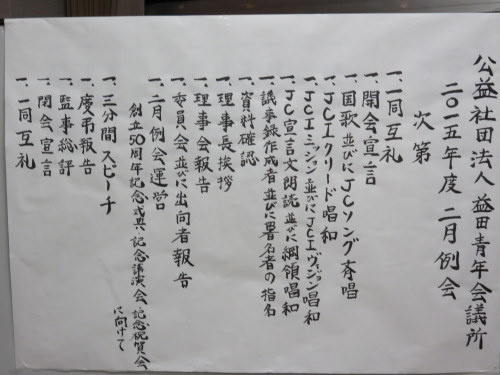 公益社団法人 益田青年会議所
二〇一五年度 二月例会
次第
一、一同互礼
一、開会宣言
一、国歌並びにJCソング斉唱
一、JCIクリード唱和
一、JCIミッション並びにJCIヴィジョン唱和
一、JC宣言文朗読並びに綱領唱和
一、議事録作成者並びに署名者の指名
一、資料確認
一、理事長挨拶
一、理事会報告
一、委員会並びに出向者報告
一、二月例会運営
創立50周年記念式典・記念講演会、記念祝賀会
に向けて
一、三分間スピーチ
一、慶弔報告
一、監事総評
一、閉会宣言
一、一同互礼